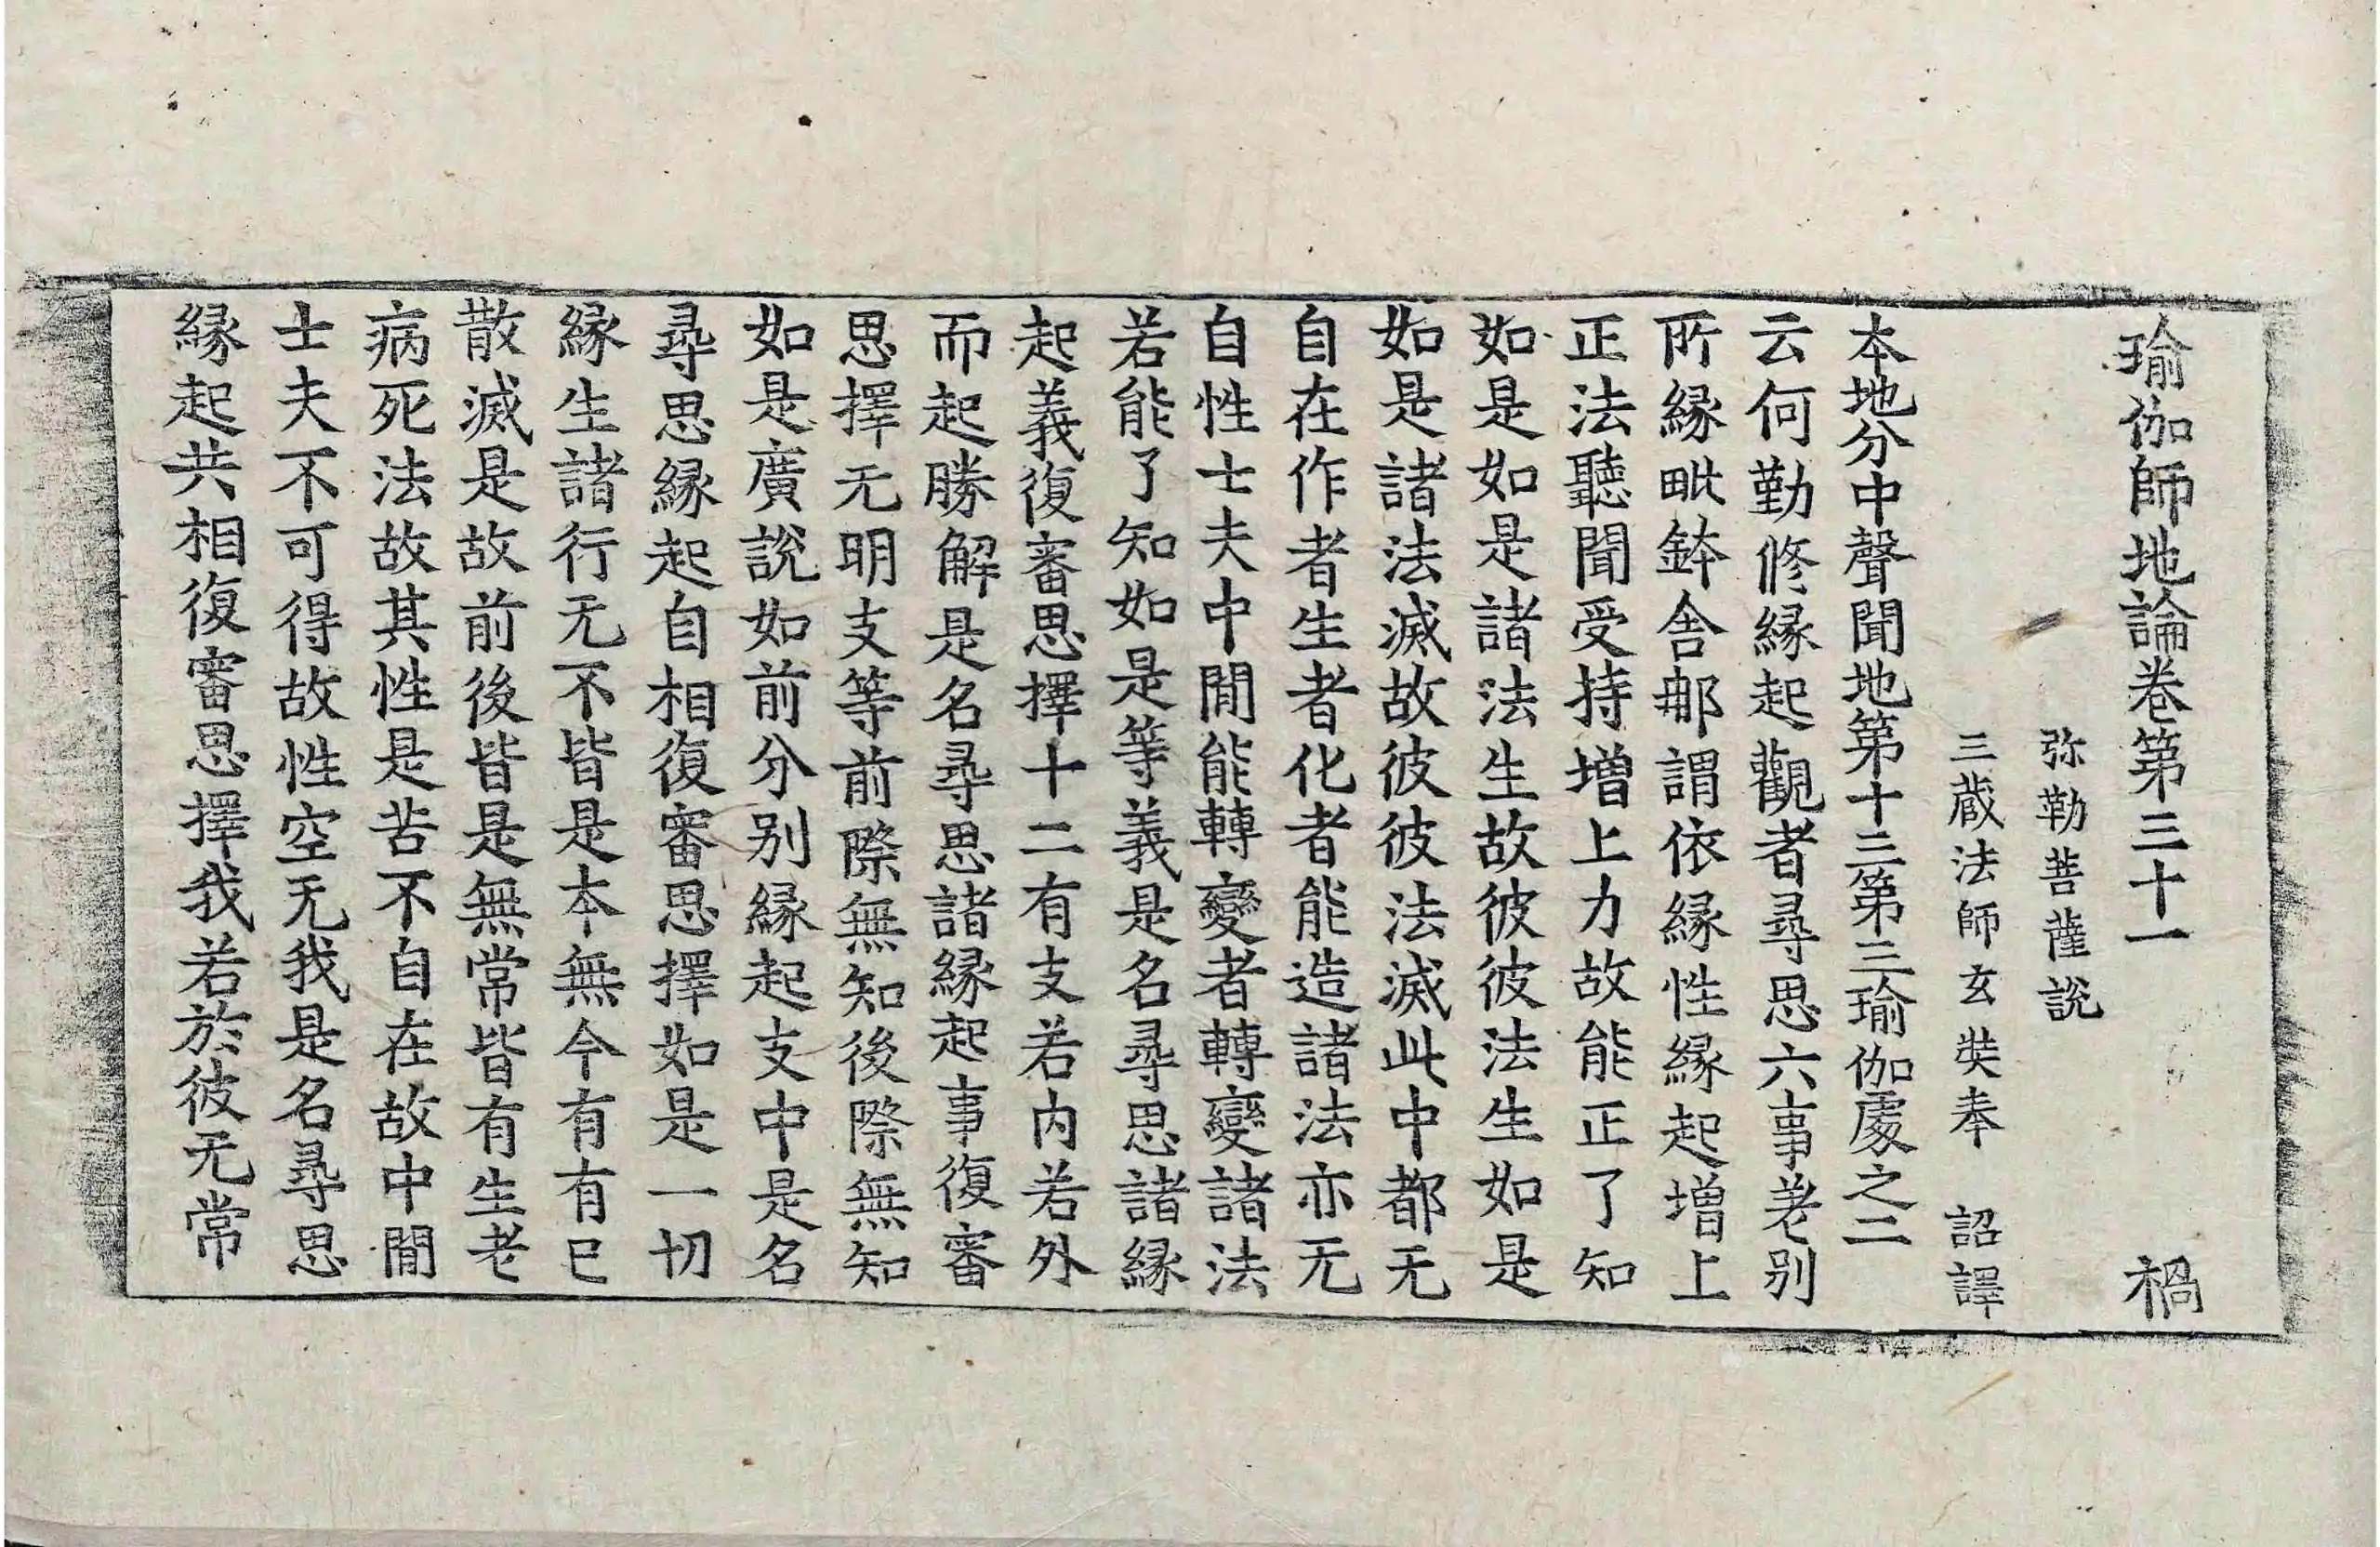 瑜伽師地論卷第三十一 禍
弥勒菩薩說
三蔵法師玄奘奉 詔譯
本地分中聲聞地第十三第三瑜伽處之二
云何勤修縁起觀者尋思六事差别
所縁毗鉢舎那謂依縁性縁起增上
正法聽聞受持增上力故能正了知
如是如是諸法生故彼彼法生如是
如是諸法滅故彼彼法滅此中都无
自在作者生者化者能造諸法亦无
自性士夫中閒能轉變者轉變諸法
若能了知如是等義是名尋思諸縁
起義復審思擇十二有支若内若外
而起勝解是名尋思諸縁起事復審
思擇无明支等前際無知後際無知
如是廣說如前分别縁起支中是名
尋思縁起自相復審思擇如是一切
縁生諸行无不皆是本無今有有已
散滅是故前後皆是無常皆有生老
病死法故其性是苦不自在故中閒
士夫不可得故性空无我是名尋思
縁起共相復審思擇我若於彼无常